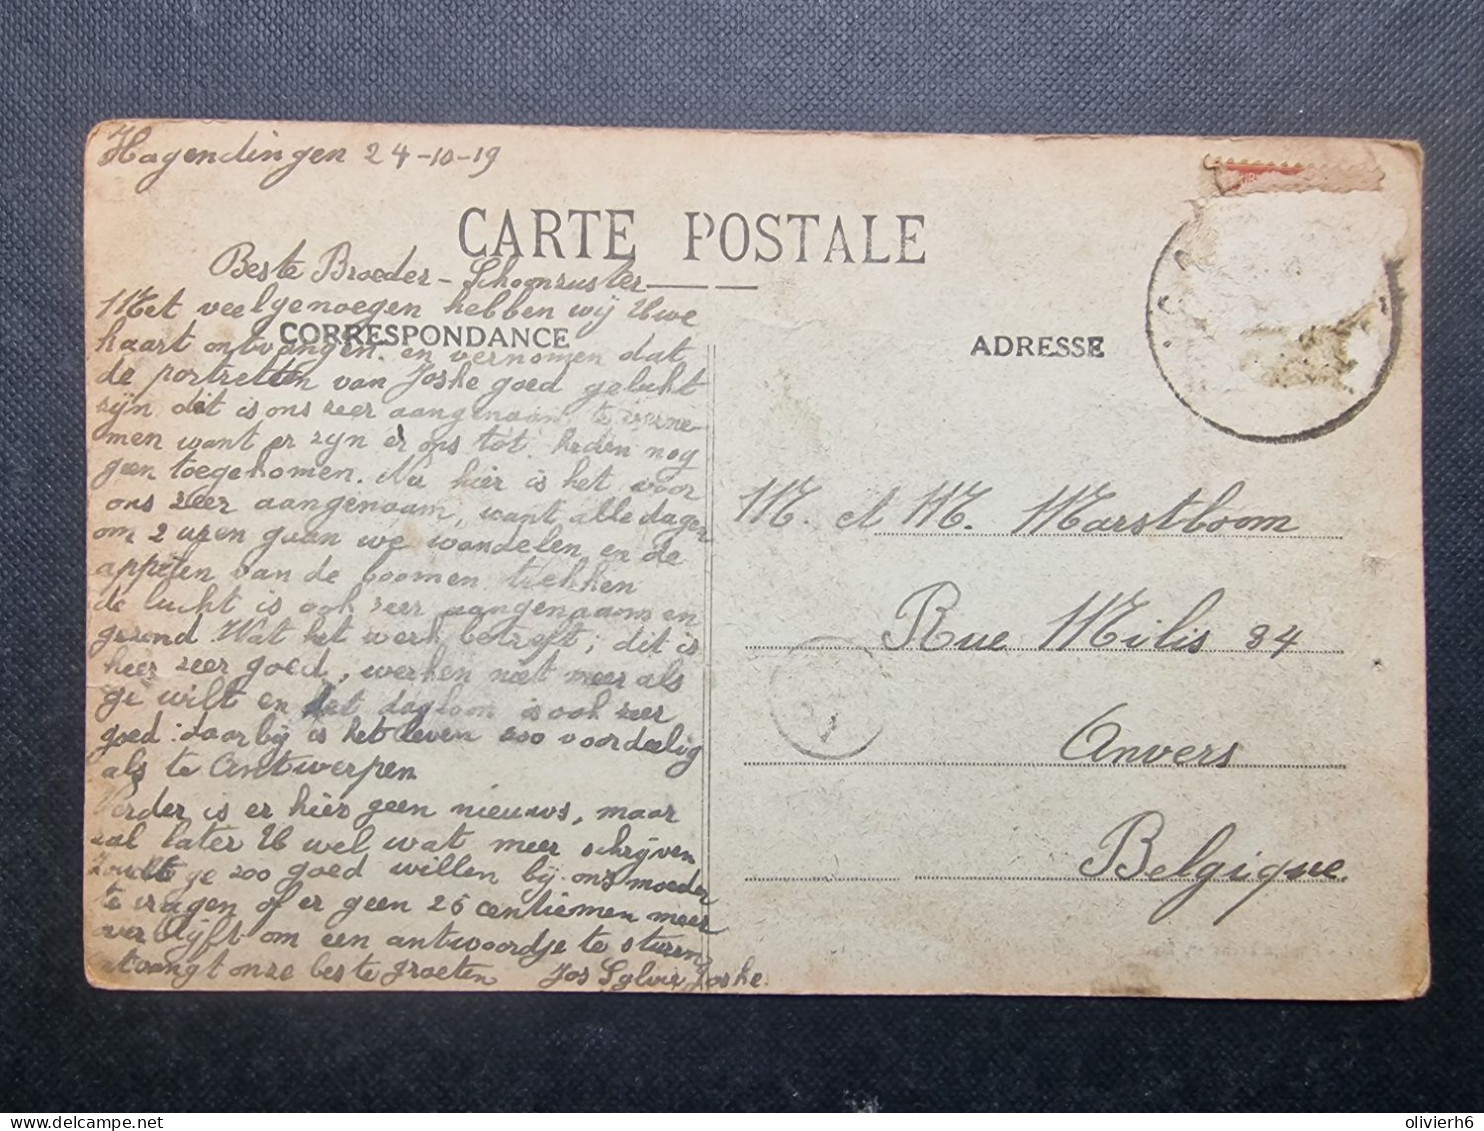 Hagendingen 24-10-19
CARTE POSTALE
Beste Broeder - Schoonzuster
CORRESPONDANCE
Met veelgenoegen hebben wij Uwe
kaart ontvangen. en vernomen dat
de portretten van Joske goed gelukt
zijn dit is ons zeer aangenaam te verne
men want er zyn er ons tot heden nog
geen toegekomen. Nu hier is het voor
ons zeer aangenaam, want alle dagen
om 2 uren gaan we wandelen en de
appelen van de boomen trekken
de lucht is ook zeer aangenaam en
gezond Wat het werk betreft; dit is
hier zeer goed, werken niet meer als
ge wilt en dagloon is ook zeer
goed. daarbij is het leven zoo voordeelig
als te Antwerpen
Verder is er hier geen nieuws, maar
zal later U wel wat meer schrijven
Zoudt ge zoo goed willen bij ons moeder
te vragen of er geen 25 centiemen meer
over blijft om een antwoordje te sturen,
ontvangt onze beste groeten Jos Sylvie Joske.
ADRESSE
M. et M. Marstboom
Rue Milis 34
Anvers
Belgique.
olivierh6